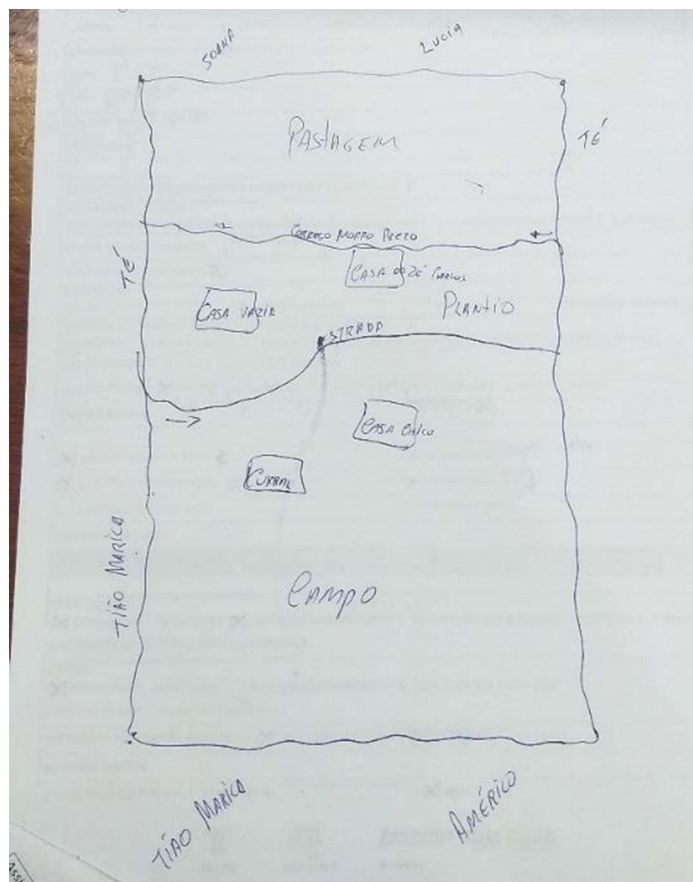 SOANA
LUCIA
PASTAGEM
TÉ
CORREGO MORRO PRETO
TÉ
CASA DO ZÉ CARLOS
CASA VAZIA
PLANTIO
ESTRADA
CASA CHICO
CURRAL
TIÃO MARICA
CAMPO
TIÃO MARICO
AMÉRICO
ASSI